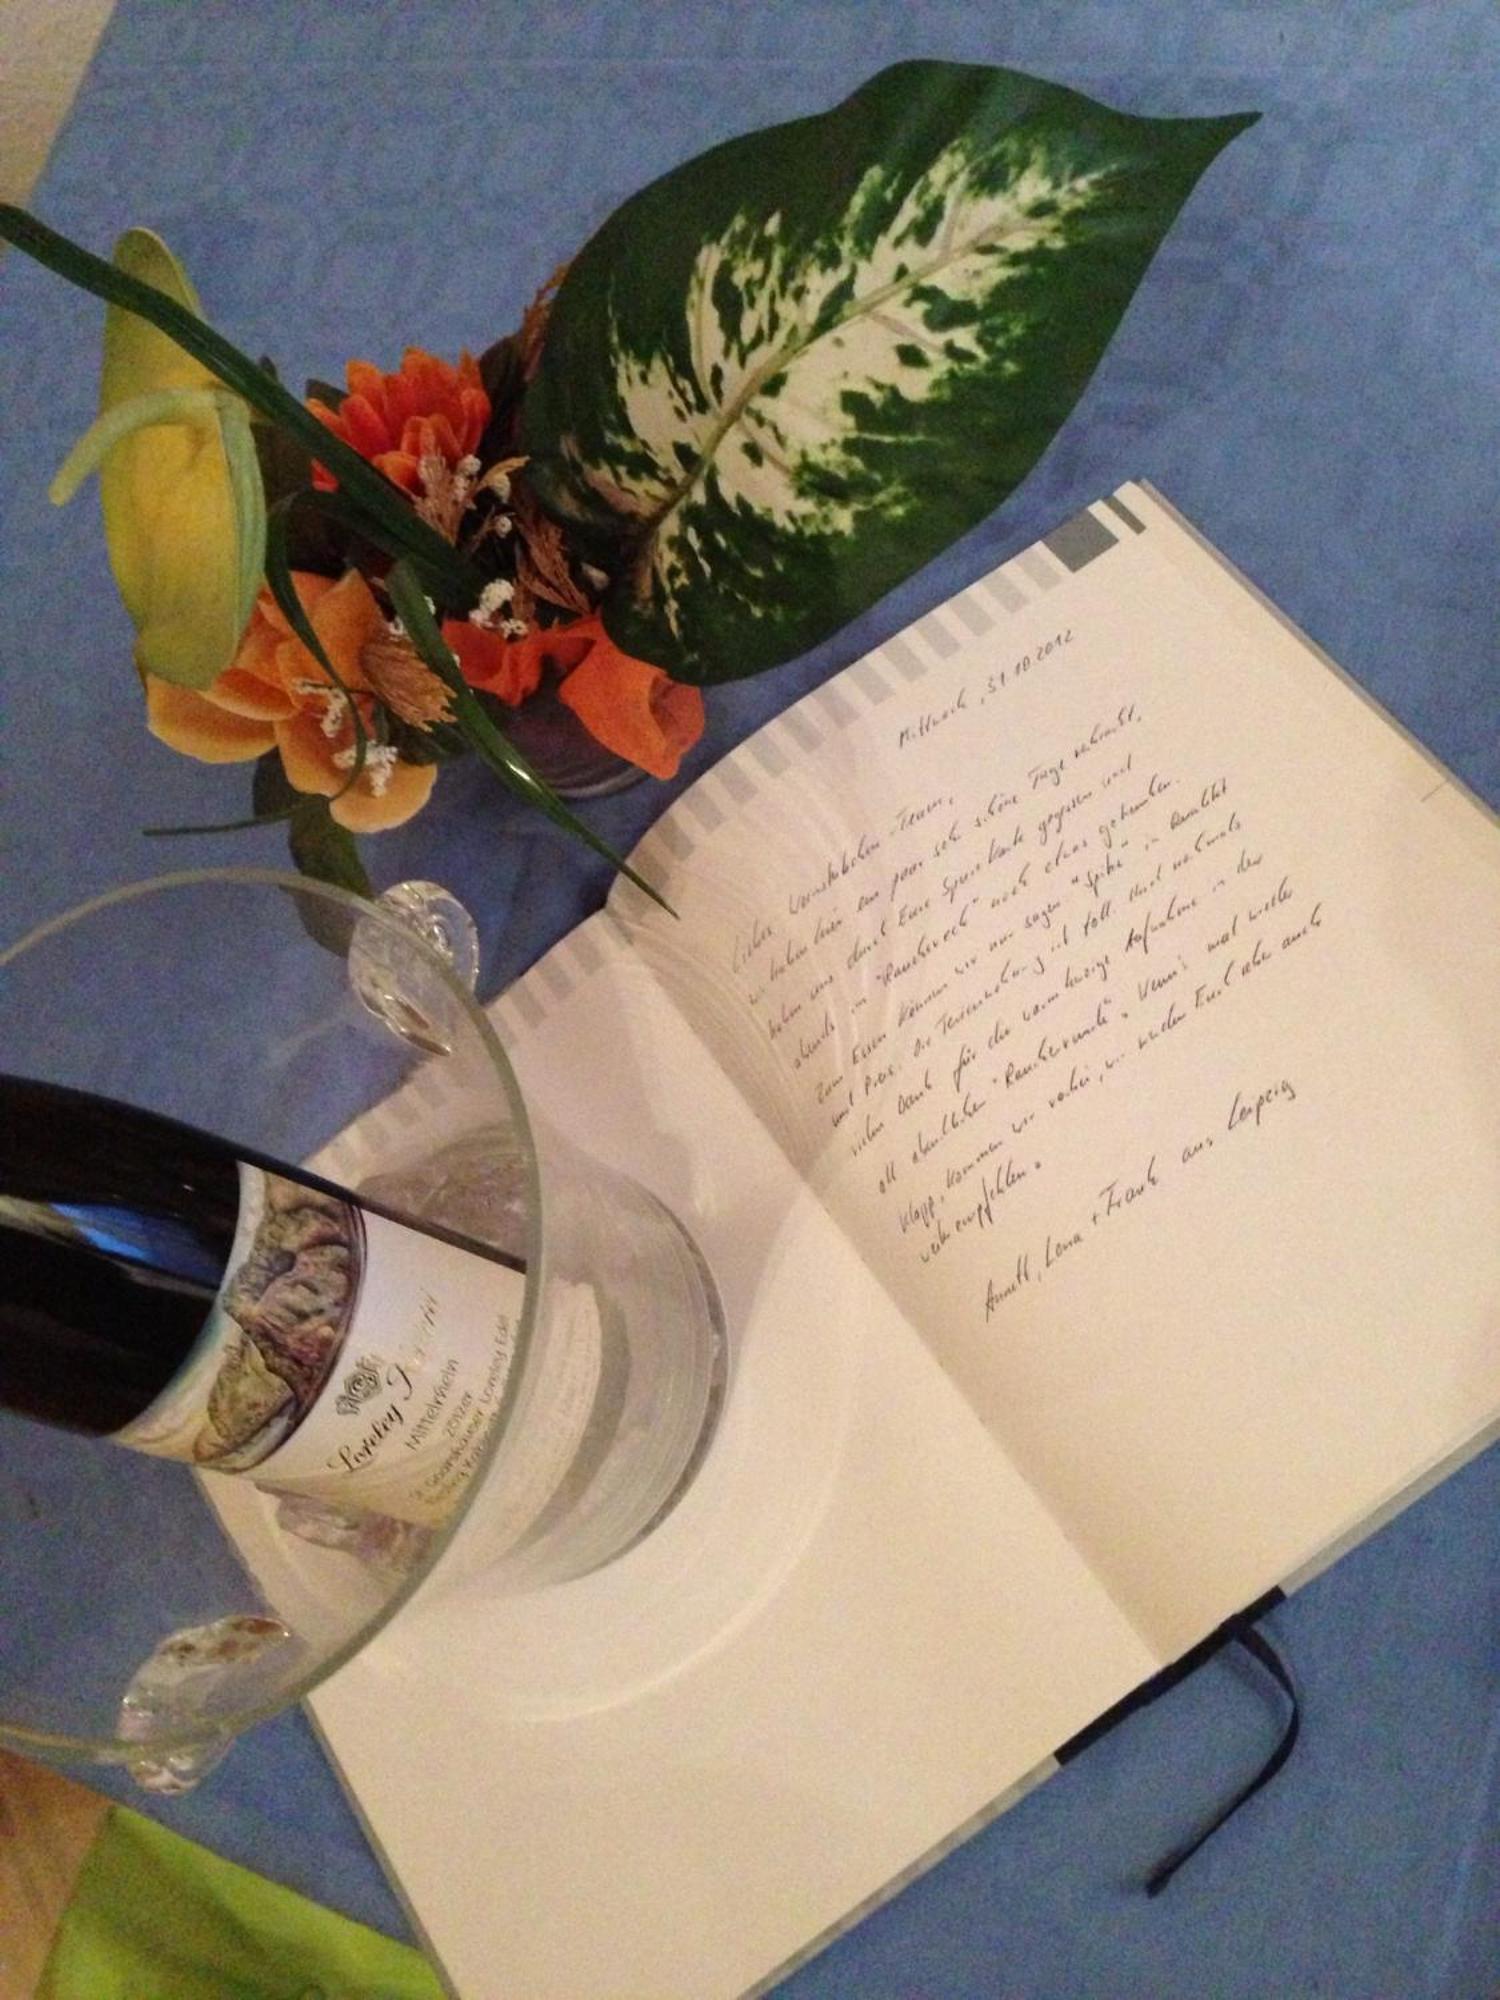 Mittwoch, 31.10.2012
Liebes Weinstübchen-Team,
wir haben hier ein paar sehr schöne Tage verbracht,
haben uns durch Eure Speisekarte gegessen und
abends im "Rauchereck" noch etwas getrunken.
Zum Essen können wir nur sagen "Spitze" in Qualität
und Preis. Die Ferienwohnung ist toll. Und nochmals
vielen Dank für die warmherzige Aufnahme in der
all abendlichen "Raucherrunde". Wenn's mal wieder
klappt, kommen wir vorbei, wir werden Euch aber auch
weiterempfehlen.
Annett, Lena + Frank aus Leipzig
Loreley
Mittelrhein
2012er
St. Goarshausener Loreley Edel
Riesling